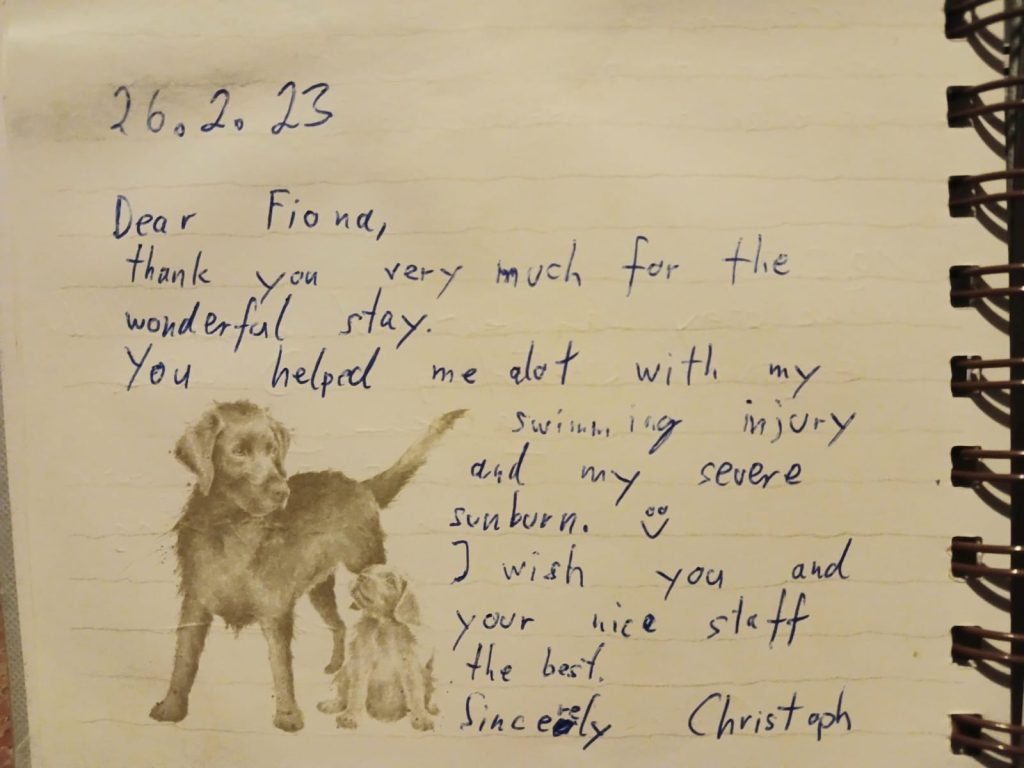 26.2.23
Dear Fiona,
thank you very much for the
wonderful stay.
You helped me alot with my
swimming injury
and my severe
sunburn.
I wish you and
your nice staff
the best.
Sincerely Christoph